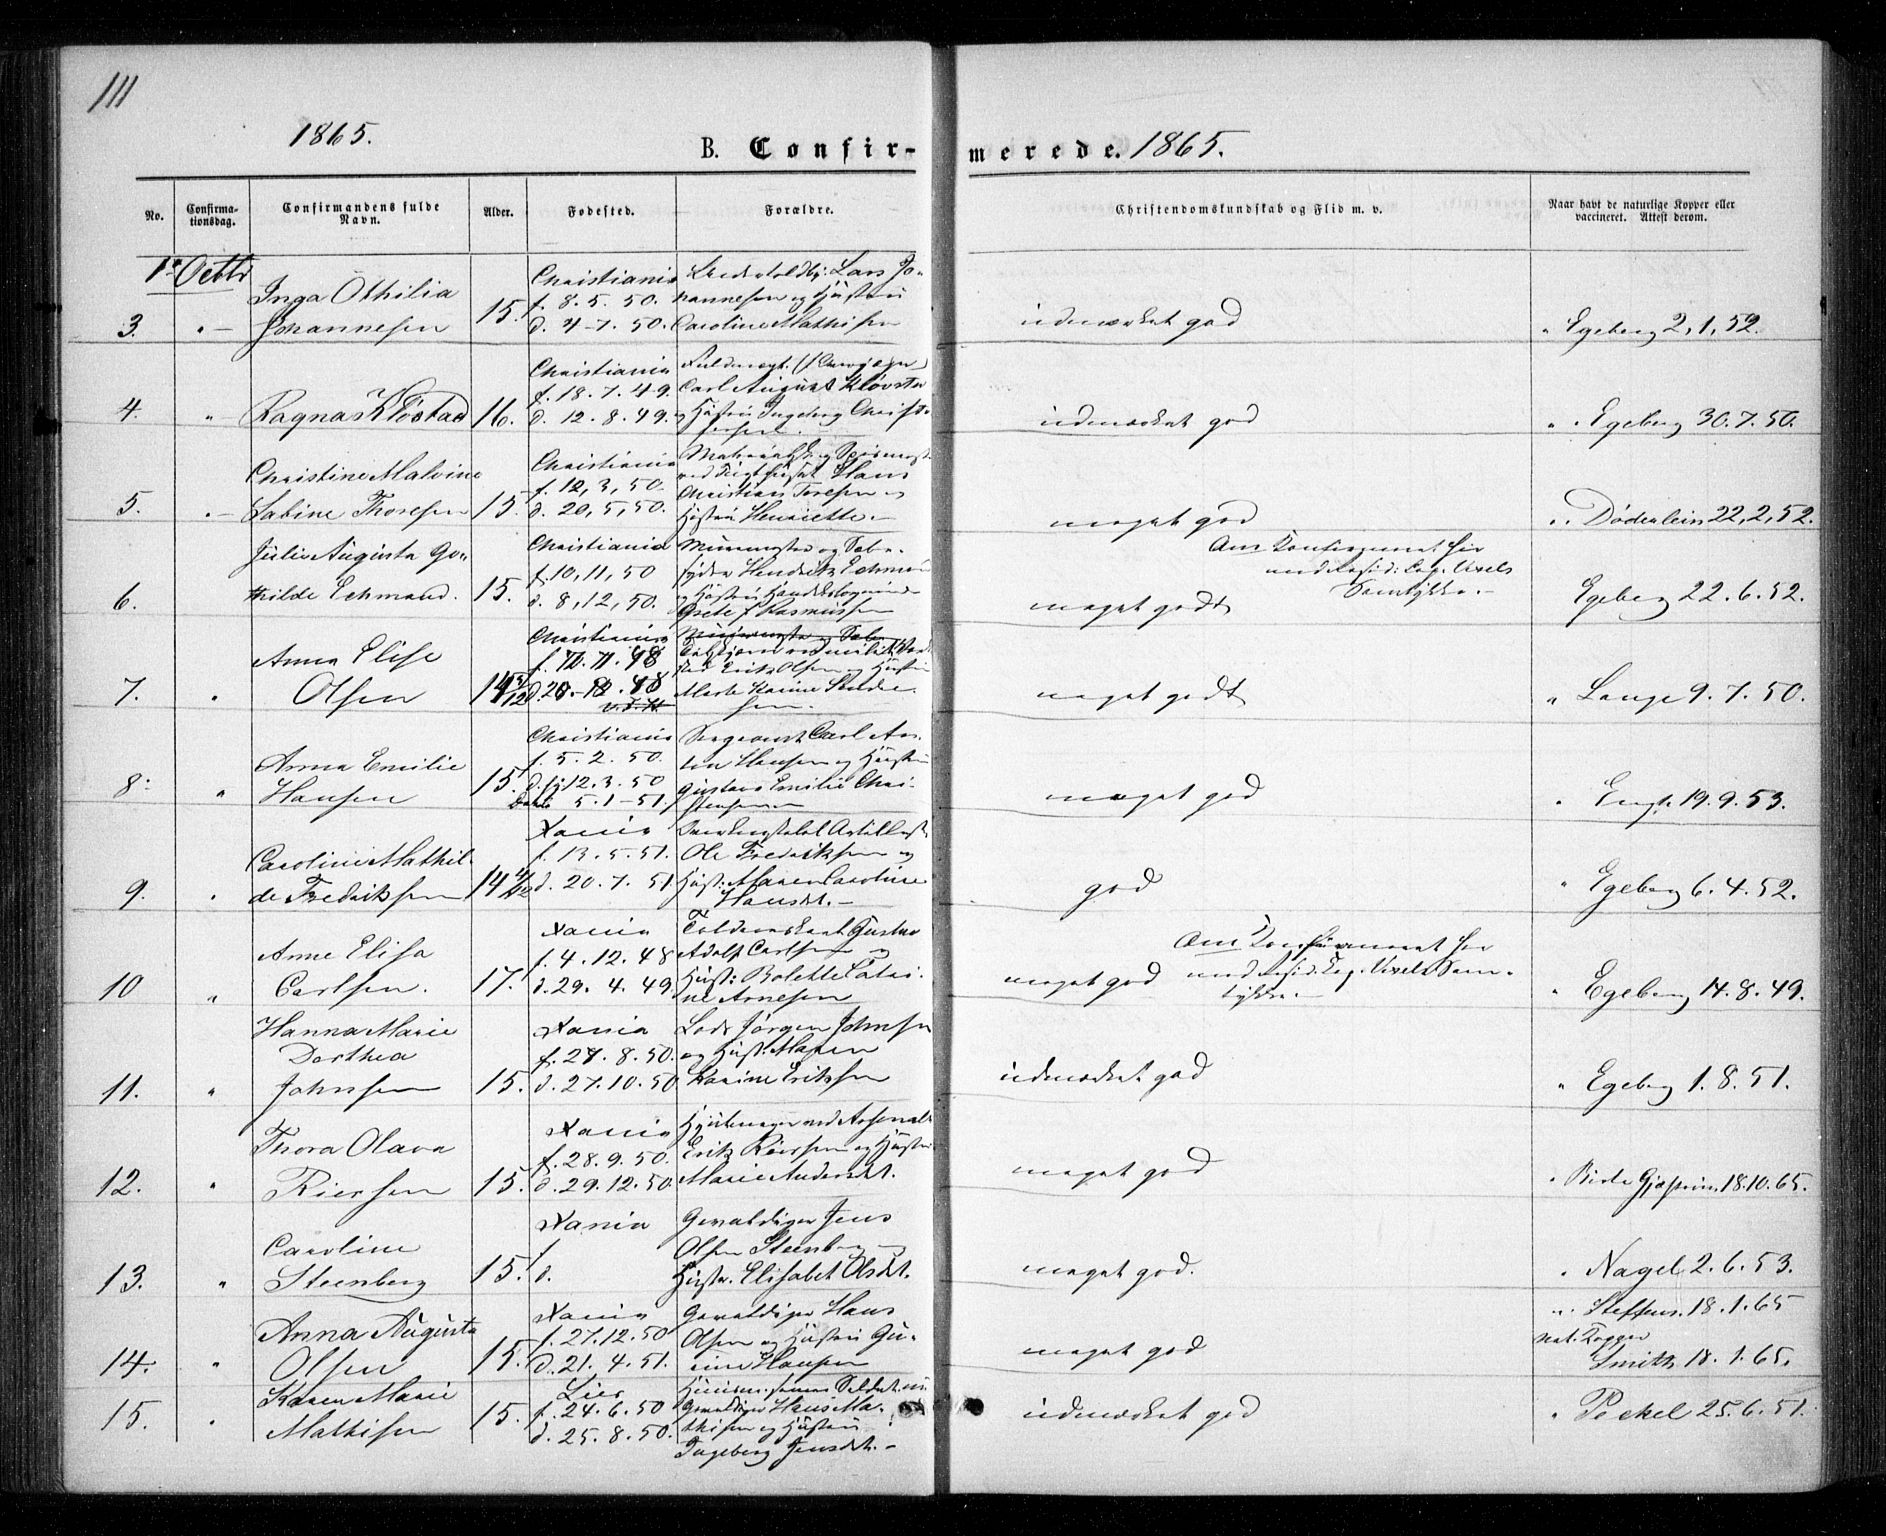 111
1865.
B. Confir-
merede. 1865.
No.
Confirma-
tionsdag.
Confirmandens fulde
Navn.
Alder.
Fødested.
Forældre.
Christendomskundskab og Flid m. v.
Naar havt de naturlige Kopper eller
vaccineret. Attest derom.
1ste Octbr
3.
Inga Othilia
Johannesen
15.
Christiania
f. 8. 5. 50.
d. 4-7. 50.
Lars Jo-
hannesen og Hustru
Caroline Mathisen
udmærket god
" Egeberg 2, 1, 52.
4.
"
Ragna Kløstad
16.
Christiania
f. 18. 7. 49.
d. 12. 8. 49.
Carl August Kløvstad
og Hustru Ingeborg Christo-
fersen.
udmærket god
" Egeberg 30. 7. 50.
5.
Christine Malvine
Sabine Thoresen
15
Christiania
f. 12, 3, 50.
d. 20, 5, 50.
Hans
Christian Toresen og
Hustru Henriette.
meget god
" Døderlein 22, 2, 52.
6.
Julie Augusta Go-
thilde Echmand.
15.
Christiania
f. 10, 11, 50
d. 8, 12, 50.
Hendrik Echman
Grete f. Rasmussen
meget godt
Am. Konfirmeret her
Samtykke.
Egeberg 22. 6. 52.
7.
"
Anna Elise
Olsen
14
Christiania
Erik Olsen og Hustru
Marte Karine
meget godt
" Lange 9. 7. 50.
8.
"
Anna Emilie
Hansen
15.
Christiania
f. 5. 2. 50.
d. hj 12. 3. 50
5. 1-51.
Sergeant Carl An-
ton Hansen og Hustru
Gustava Emilie Chri-
stensen
meget god
" Engh 19. 9. 53.
9.
"
Caroline Mathil-
de Fredriksen
14 4/12
Xania
f. 13. 5. 51.
d. 20. 7. 51.
Ole Fredriksen og
Hust: Maren Caroline
Hansdt.
god
" Egeberg 6. 4. 52.
10
"
Anne Elisa
Carlsen.
17.
Xania
f. 4. 12. 48
d. 29. 4. 49.
Gustav
Adolf Carlsen og
Hust: Bolette Catri-
ne Arnesen
meget god
Am. Konfirmeret her
Sam-
tykke.
" Egeberg 14. 8. 49.
11.
"
Hanna Marie
Dorthea
Johnsen
15.
Xania
f. 27. 8. 50.
d. 27. 10. 50
Lods Jørgen Johnsen
og Hust: Maren
Karine Eriksen
udmærket god
" Egeberg 1. 8. 51.
12.
"
Thora Olava
Riersen
15.
Xania
f. 28. 9. 50.
d. 29. 12. 50.
Erik Riersen og Hustru
Marie Andersdt.
meget god
18. 10. 65.
13.
"
Caroline
Steenberg
15.
Xania
f.
d.
Gevaldiger Jens
Olsen Steenberg og
Hustr. Elisabet Olsdt.
meget god.
" Nagel 2. 6. 53.
14.
"
Anna Augusta
Olsen
15.
Xania
f. 27. 12. 50
d. 21. 4. 51.
Gevaldiger Hans
Olsen og Hustru Gu-
rine Hansen
meget god
" Steffens. 18. 1. 65
nat. Kopper
Smith 18. 1. 65.
15.
"
Karen Marie
Mathisen
15.
Lier
f. 24. 6. 50
d. 25. 8. 50.
Gevaldiger Hans Ma-
thisen og Hustru
Ingeborg Jensdt.
udmærket god
" Peckel 25. 6. 51.